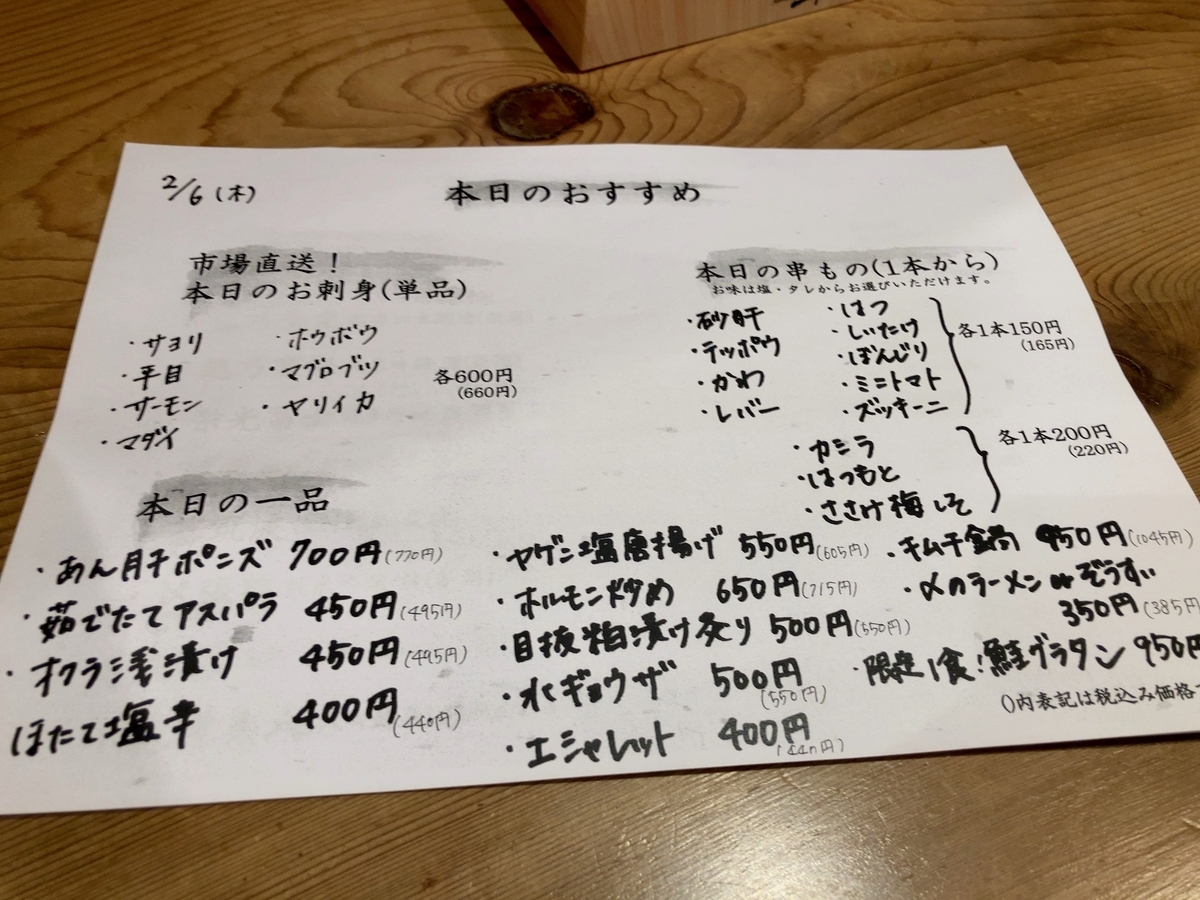 2/6(木)
本日のおすすめ
市場直送!
本日のお刺身(単品)
・サヨリ
・平目
・サーモン
・マダイ
・ホウボウ
・マグロブツ
・ヤリイカ
各600円
(660円)
本日の串もの(1本から)
お味は塩・タレからお選びいただけます。
・砂肝
・テッポウ
・かわ
・レバー
・はつ
・しいたけ
・ぼんじり
・ミニトマト
・ズッキーニ
各1本150円
(165円)
・カシラ
・はつもと
・ささみ梅しそ
各1本200円
(220円)
本日の一品
・あん肝ポンズ 700円(770円)
・茹でたてアスパラ 450円(495円)
・オクラ浅漬け 450円(495円)
ほたて塩辛 400円(440円)
・ヤゲン塩唐揚げ 550円(605円)
・ホルモン炒め 650円(715円)
・目抜粕漬け炙り 500円(550円)
・水ギョウザ 500円(550円)
・エシャレット 400円(440円)
・キムチ鍋 950円(1045円)
・〆のラーメンorぞうすい
350円(385円)
・限定1食!鮭グラタン 950円
()内表記は税込み価格